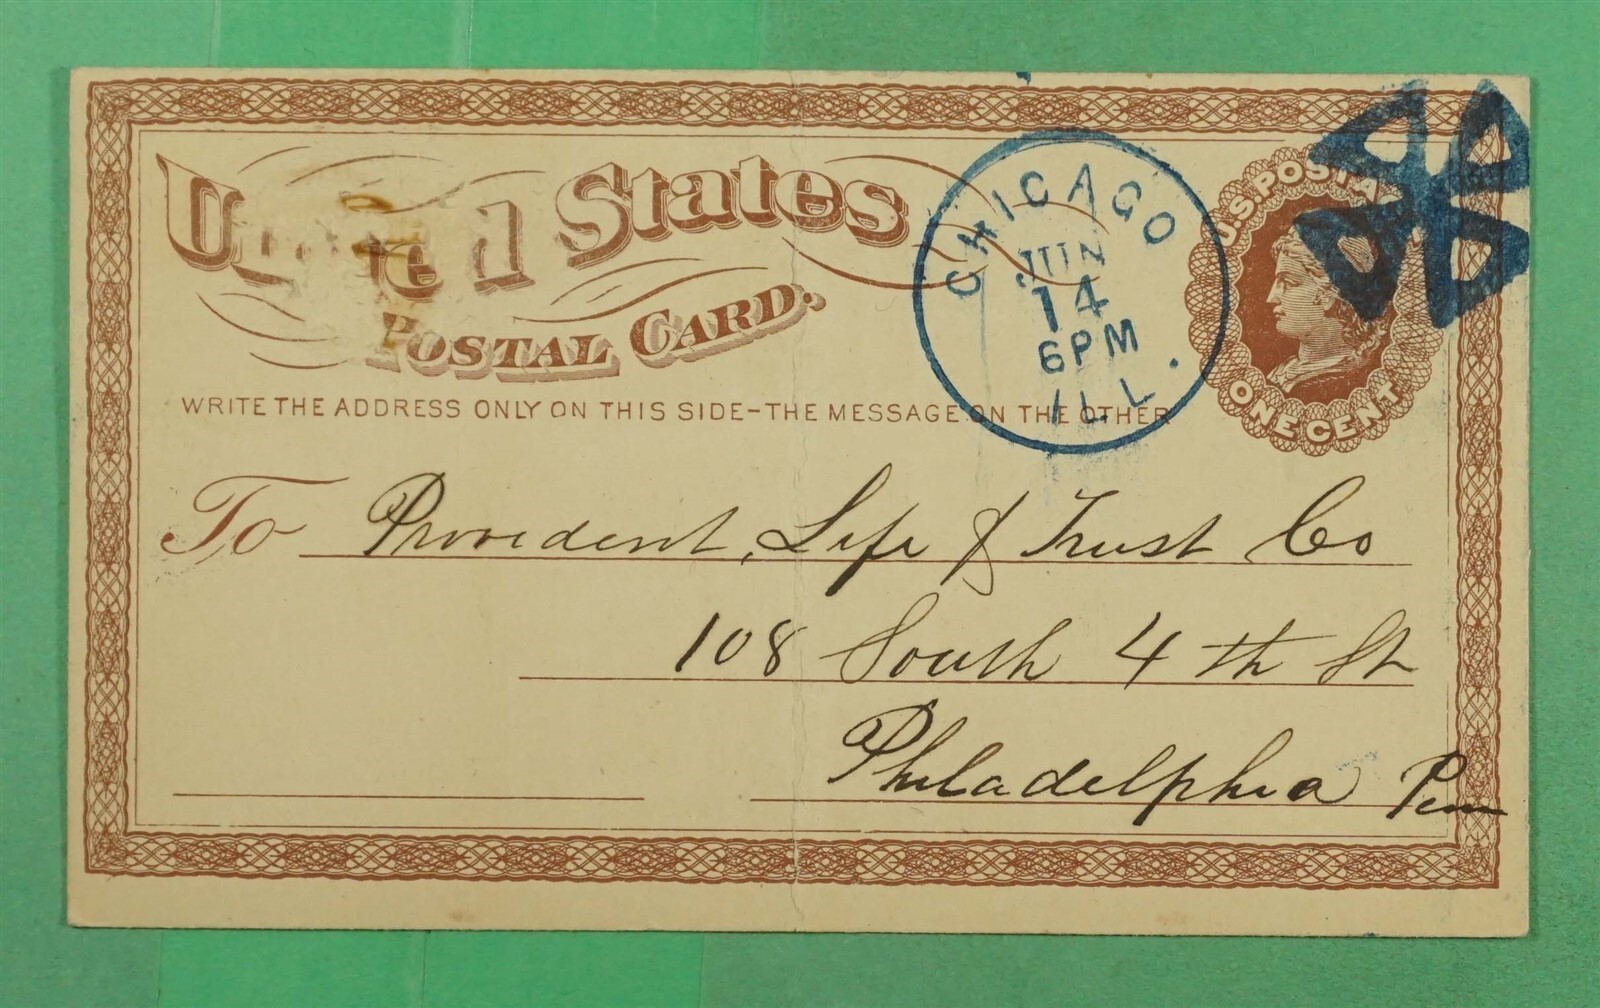 United States
POSTAL CARD.
WRITE THE ADDRESS ONLY ON THIS SIDE-THE MESSAGE ON THE OTHER
CHICAGO
JUN
14
6PM
ILL.
U.S. POSTA
ONE CENT
To Provident Life & Trust Co
108 South 4th St
Philadelphia Penn